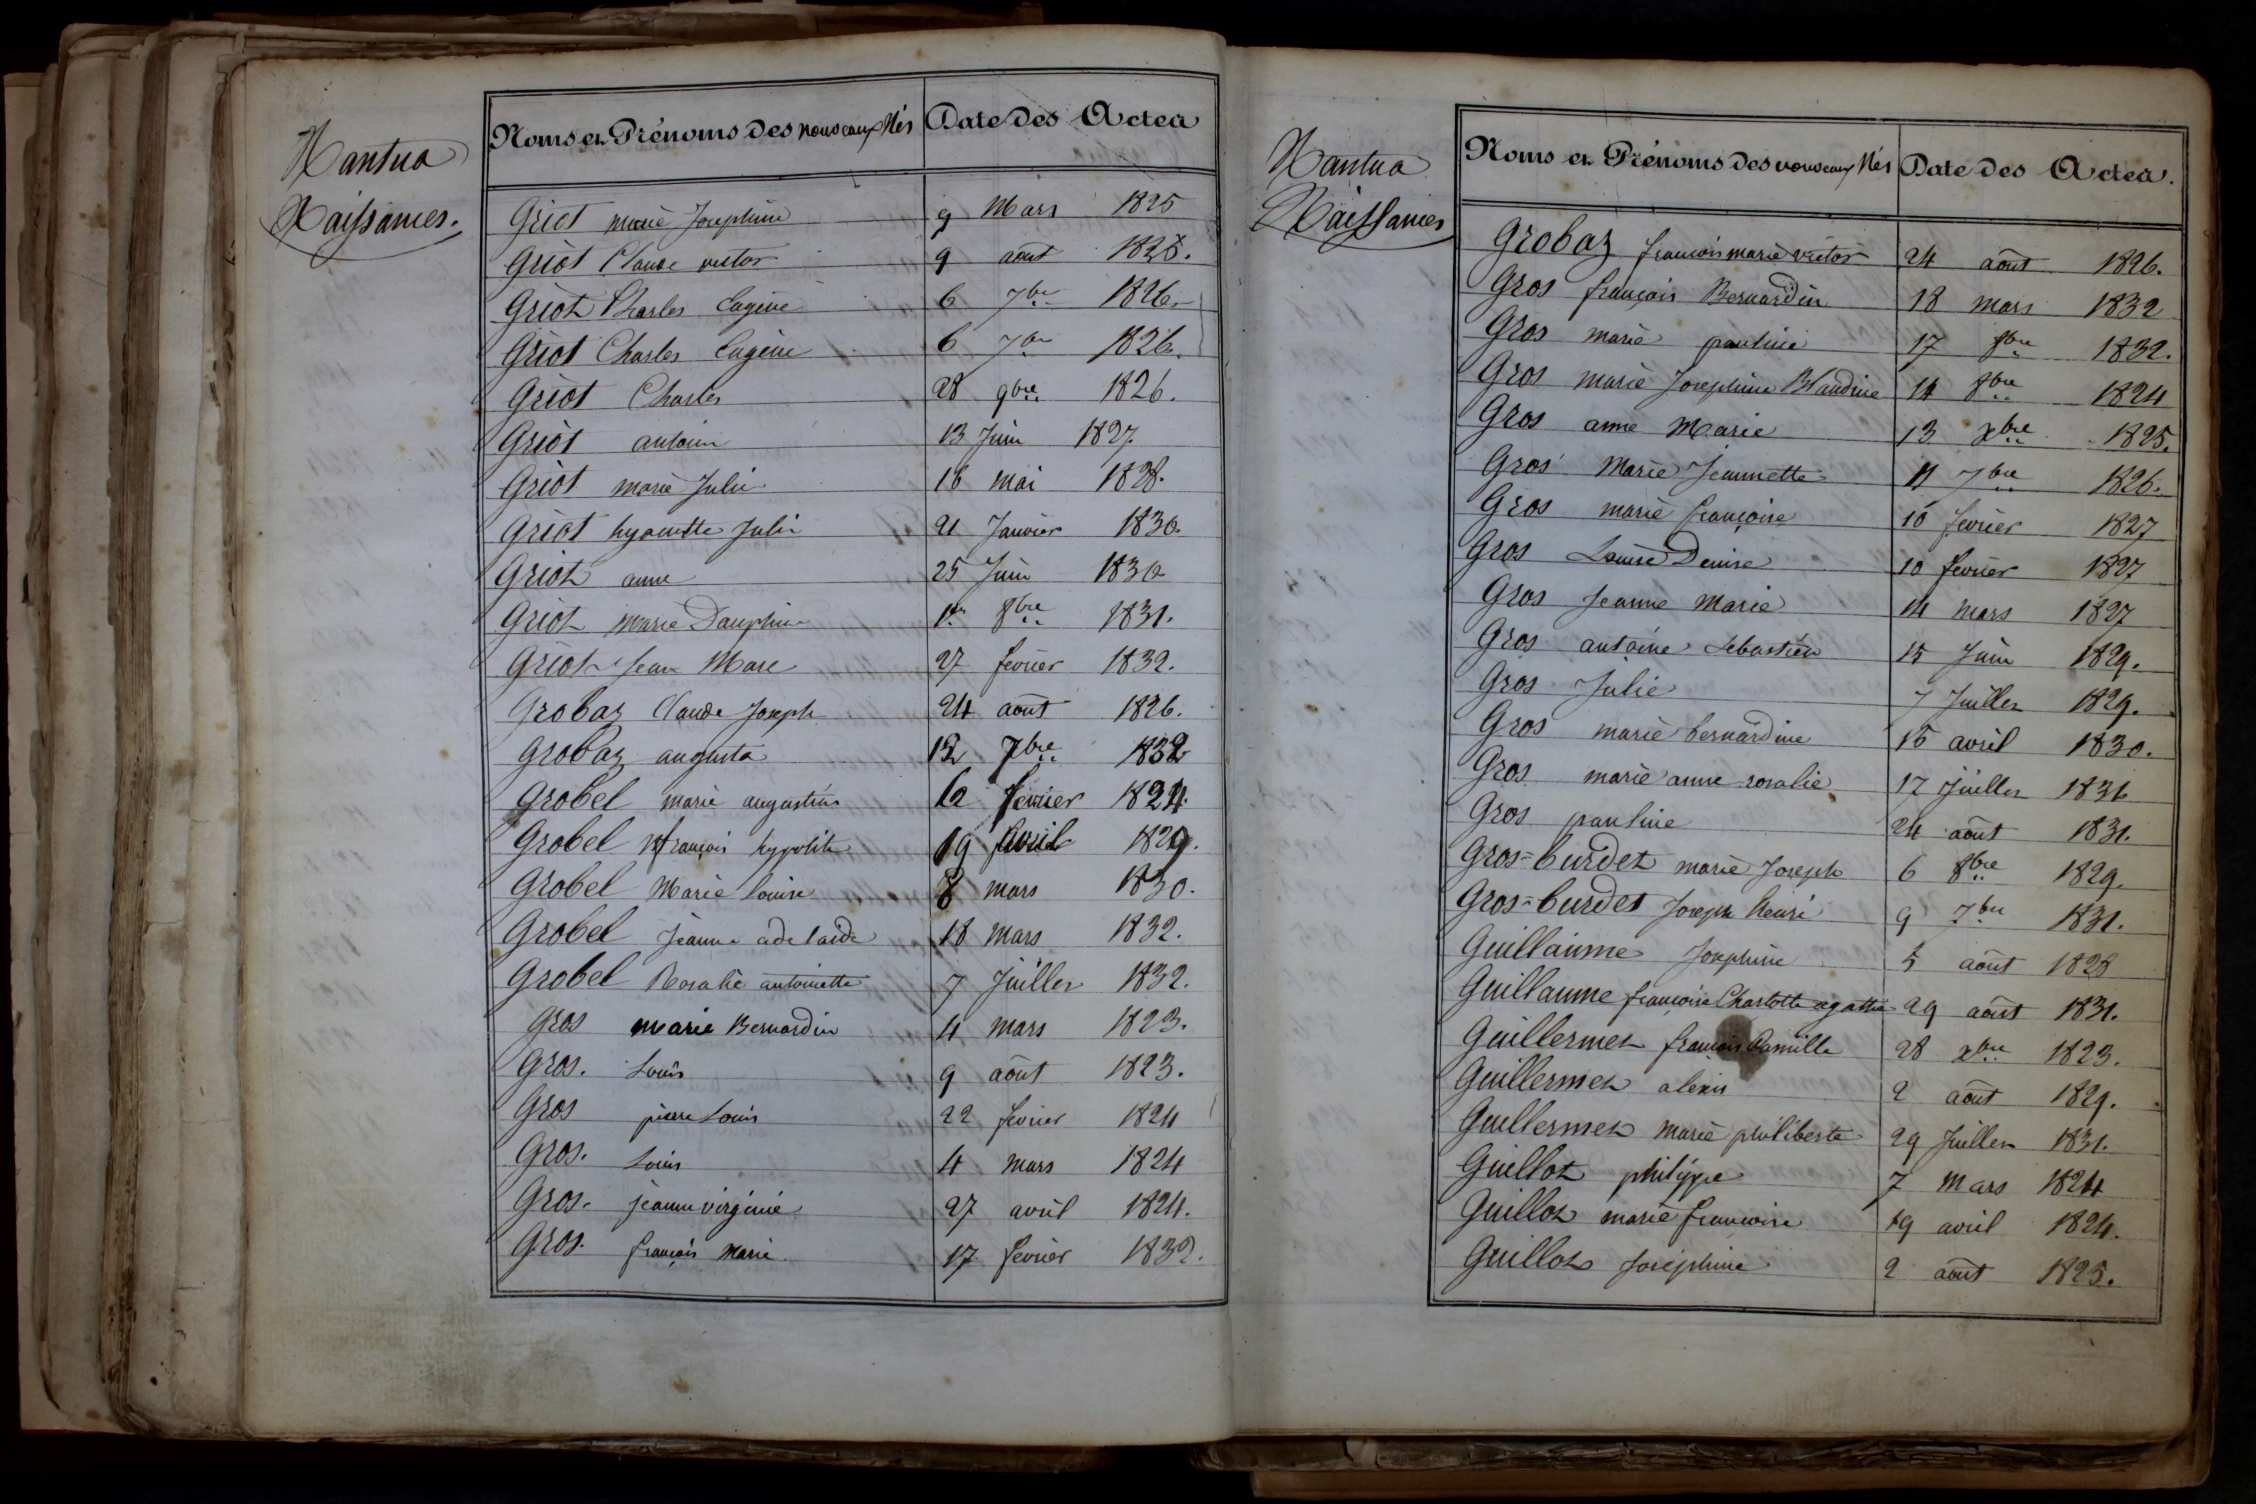 Nantua
Naissances.
Noms et Prénoms des nouveaux Nés Date des Actes
Griot marie Josephine 9 Mars 1825
Griot Claude victor 9 août 1825.
Griot Charles Eugène 6 7bre 1826.
Griot Charles Eugène 6 7bre 1826.
Griot Charles 28 9bre 1826.
Griot antoine 13 Juin 1827.
Griot marie Julie 16 mai 1828.
Griot hyacinthe Julie 21 Janvier 1830.
Griot anne 25 Juin 1830
Griot marie Dauphine 1er 8bre 1831.
Griot Jean Marc 27 fevrier 1832.
Grobaz Claude Joseph 24 août 1826.
Grobaz augusta 12 7bre 1832
Grobel marie augustin fevrier 1824.
Grobel françois hypolite 19 Avril 1829.
Grobel Marie louise 8 mars 1830.
Grobel Jeanne adelaide 18 mars 1832.
Grobel Rosalie antoinette 7 Juillet 1832.
Gros marie Bernardin 4 mars 1823.
Gros. Louis 9 août 1823.
Gros pierre Louis 22 fevrier 1824
Gros. Louis 4 mars 1824
Gros. jeanne virginie 27 avril 1824.
Gros. françois marie 17 fevrier 1832.
Nantua
Naissances
Noms et Prénoms des nouveaux Nés Date des Actes.
Grobaz françois marie victor 24 août 1826.
Gros françois Bernardin 18 mars 1832
Gros marie pauline 17 8bre 1832.
Gros marie Josephine Blandine 14 8bre 1824
Gros anne Marie 13 xbre 1825.
Gros Marie Jeannette 11 7bre 1826.
Gros marie françoise 10 fevrier 1827
Gros Louise Denise 10 fevrier 1827
Gros Jeanne Marie 14 mars 1827
Gros antoine Sebastien 15 Juin 1829.
Gros Julie 7 Juillet 1829.
Gros marie bernardine 15 avril 1830.
Gros marie anne rosalie 17 Juillet 1831
Gros pauline 24 août 1831.
Gros=burdet marie Joseph 6 8bre 1829.
Gros=burdet Joseph henri 9 7bre 1831.
Guillaume Josephine 5 août 1828
Guillaume françoise Charlotte agathe 29 août 1831.
Guillermet françois Camille 28 xbre 1823.
Guillermet alexis 2 août 1829.
Guillermet marie philiberte 29 Juillet 1831.
Guillot philippe 7 mars 1824
Guillot marie françoise 19 avril 1824.
Guillot Josephine 2 août 1825.